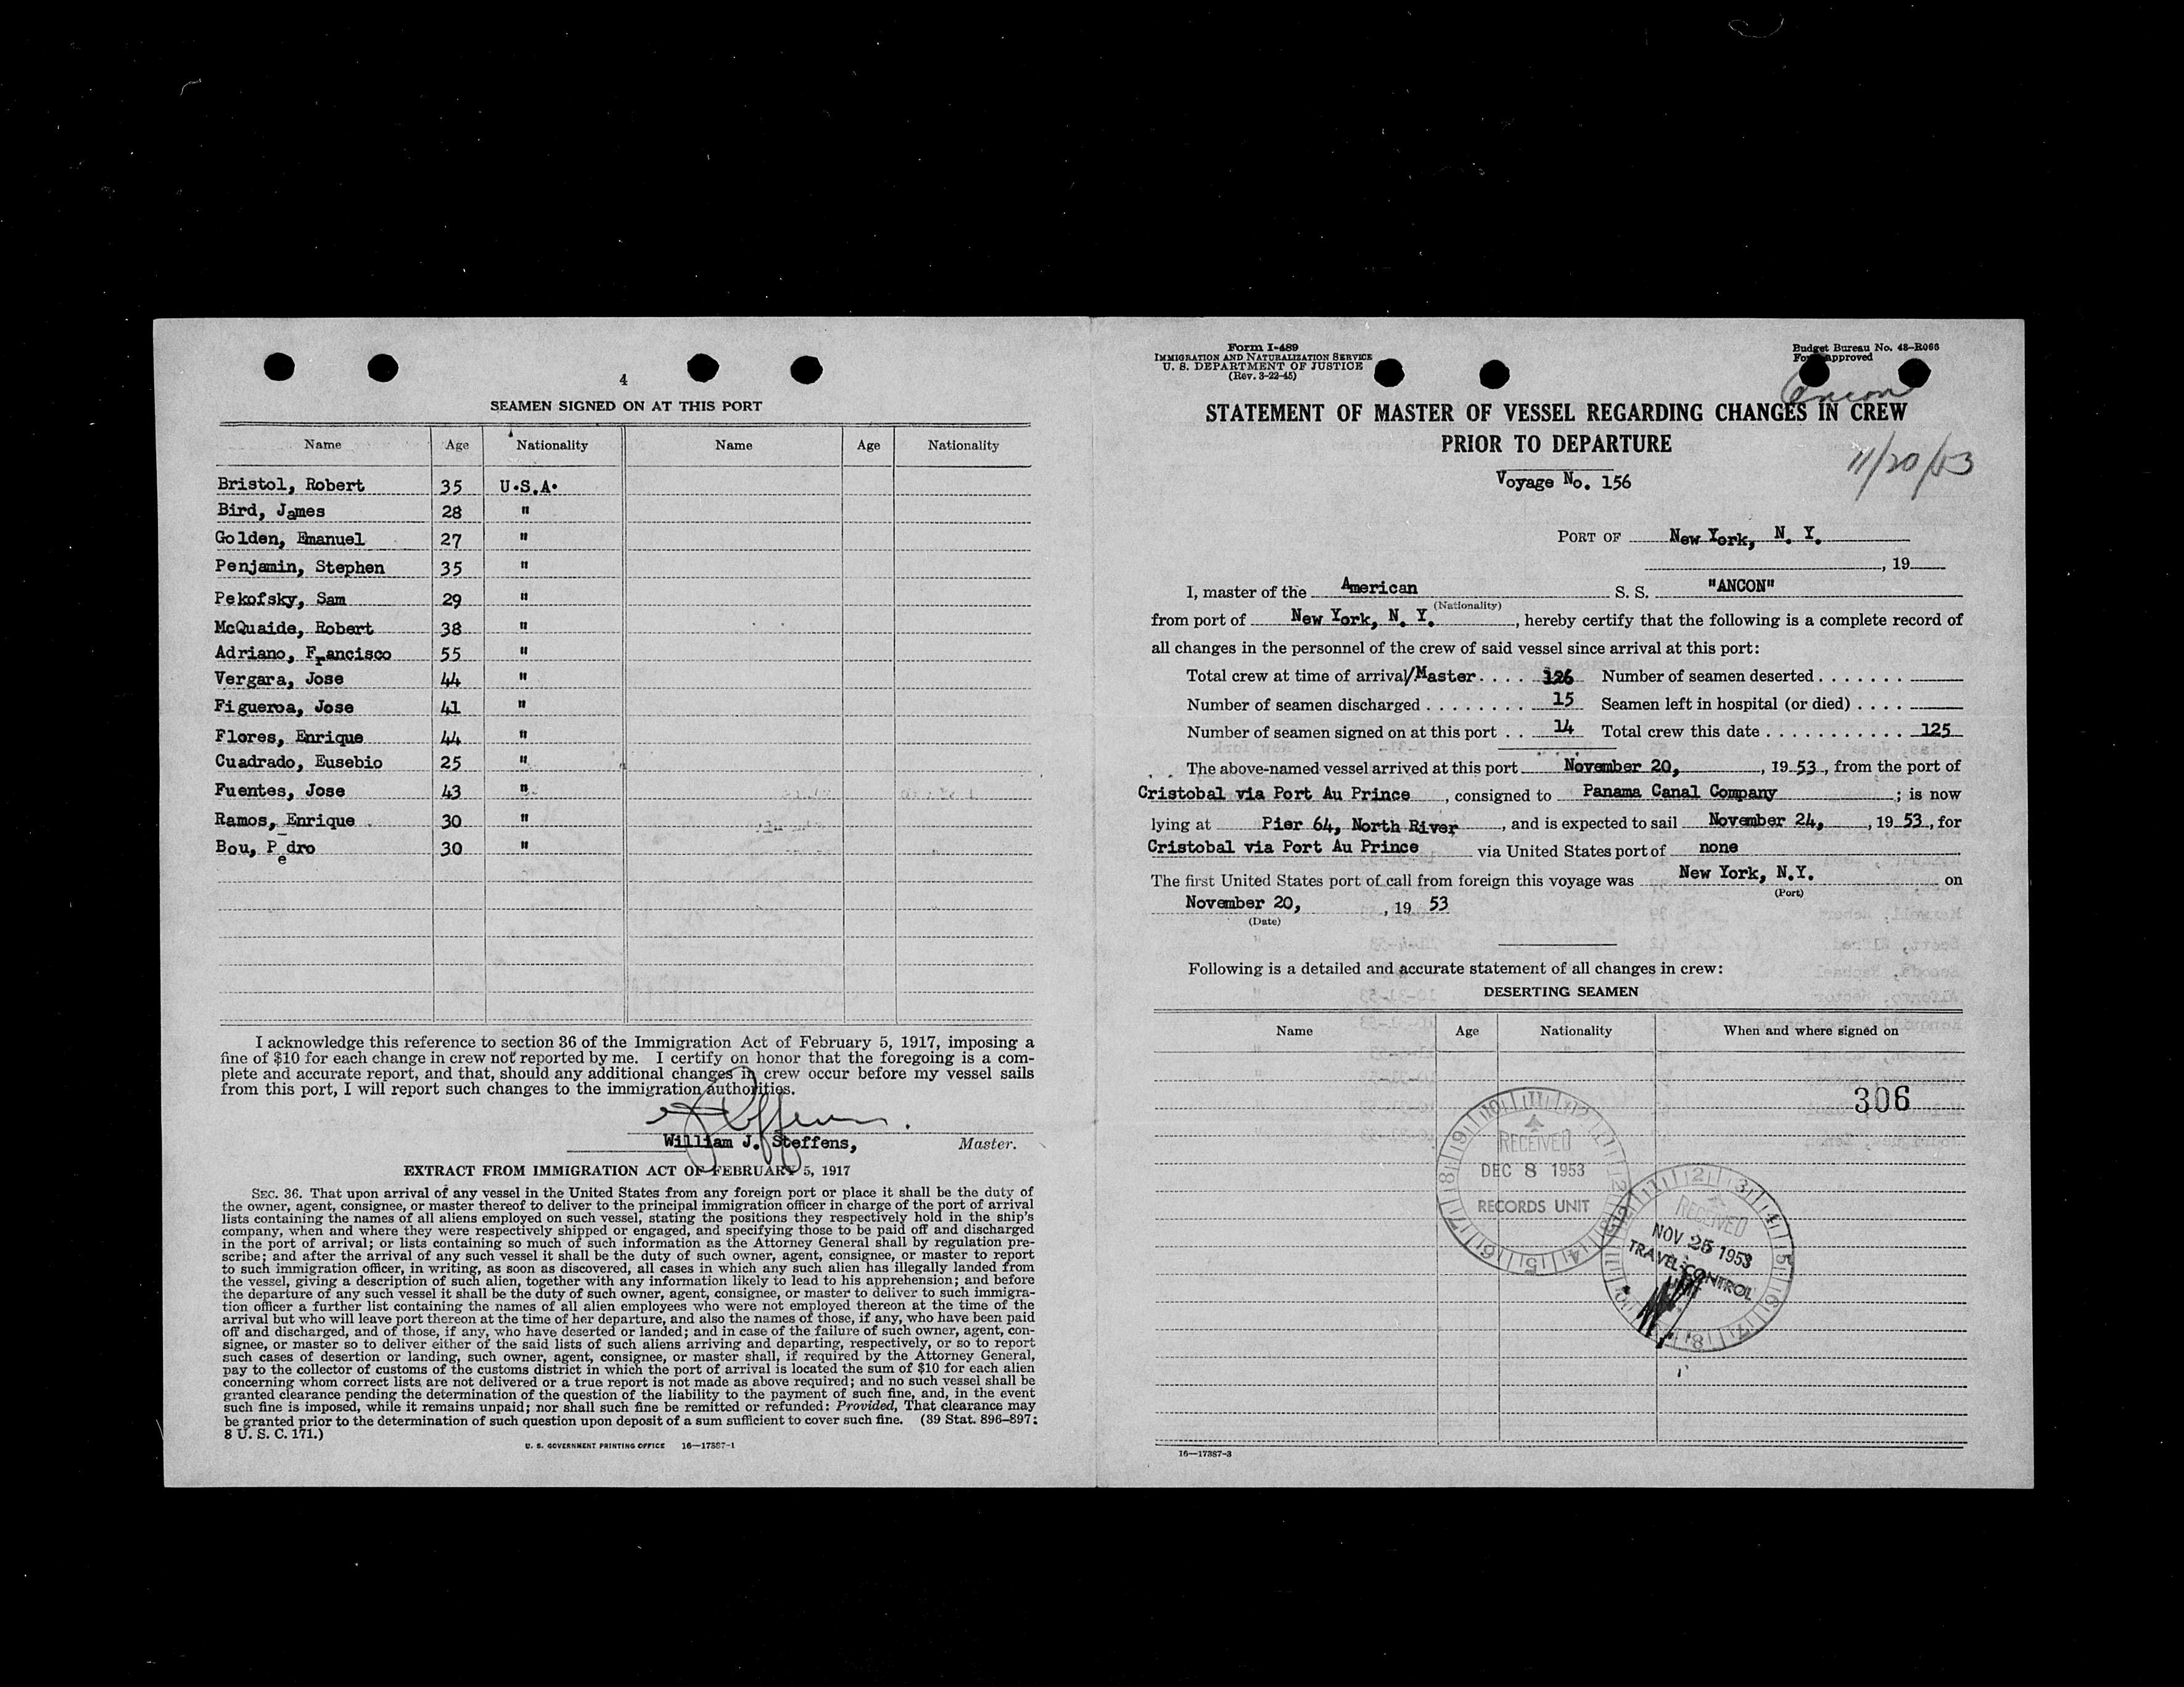 4
SEAMEN SIGNED ON AT THIS PORT
Name Age Nationality Name Age Nationality
Bristol, Robert 35 U.S.A.
Bird, James 28 "
Golden, Emanuel 27 "
Penjamin, Stephen 35 "
Pekofsky, Sam 29 "
McQuaide, Robert 38 "
Adriano, Francisco 55 "
Vergara, Jose 44 "
Figueroa, Jose 41 "
Flores, Enrique 44 "
Cuadrado, Eusebio 25 "
Fuentes, Jose 43 "
Ramos, Enrique 30 "
Bou, Pedro 30 "
I acknowledge this reference to section 36 of the Immigration Act of February 5, 1917, imposing a
fine of $10 for each change in crew not reported by me. I certify on honor that the foregoing is a com-
plete and accurate report, and that, should any additional changes in crew occur before my vessel sails
from this port, I will report such changes to the immigration authorities.
William J. Steffens, Master.
EXTRACT FROM IMMIGRATION ACT OF FEBRUARY 5, 1917
SEC. 36. That upon arrival of any vessel in the United States from any foreign port or place it shall be the duty of
the owner, agent, consignee, or master thereof to deliver to the principal immigration officer in charge of the port of arrival
lists containing the names of all aliens employed on such vessel, stating the positions they respectively hold in the ship's
company, when and where they were respectively shipped or engaged, and specifying those to be paid off and discharged
in the port of arrival; or lists containing so much of such information as the Attorney General shall by regulation pre-
scribe; and after the arrival of any such vessel it shall be the duty of such owner, agent, consignee, or master to report
to such immigration officer, in writing, as soon as discovered, all cases in which any such alien has illegally landed from
the vessel, giving a description of such alien, together with any information likely to lead to his apprehension; and before
the departure of any such vessel it shall be the duty of such owner, agent, consignee, or master to deliver to such immigra-
tion officer a further list containing the names of all alien employees who were not employed thereon at the time of the
arrival but who will leave port thereon at the time of her departure, and also the names of those, if any, who have been paid
off and discharged, and of those, if any, who have deserted or landed; and in case of the failure of such owner, agent, con-
signee, or master so to deliver either of the said lists of such aliens arriving and departing, respectively, or so to report
such cases of desertion or landing, such owner, agent, consignee, or master shall, if required by the Attorney General,
pay to the collector of customs of the customs district in which the port of arrival is located the sum of $10 for each alien
concerning whom correct lists are not delivered or a true report is not made as above required; and no such vessel shall be
granted clearance pending the determination of the question of the liability to the payment of such fine, and, in the event
such fine is imposed, while it remains unpaid; nor shall such fine be remitted or refunded: Provided, That clearance may
be granted prior to the determination of such question upon deposit of a sum sufficient to cover such fine. (39 Stat. 896-897;
8 U. S. C. 171.)
U. S. GOVERNMENT PRINTING OFFICE 16—17387-1
Form I-489
IMMIGRATION AND NATURALIZATION SERVICE
U. S. DEPARTMENT OF JUSTICE
(Rev. 3-22-45)
Budget Bureau No. 43-R066
approved
Ancon
STATEMENT OF MASTER OF VESSEL REGARDING CHANGES IN CREW
PRIOR TO DEPARTURE
11/20/53
Voyage No. 156
PORT OF New York, N. Y.
, 19
I, master of the American S. S. "ANCON"
(Nationality)
from port of New York, N. Y. , hereby certify that the following is a complete record of
all changes in the personnel of the crew of said vessel since arrival at this port:
Total crew at time of arrival/Master 126 Number of seamen deserted
Number of seamen discharged 15 Seamen left in hospital (or died)
Number of seamen signed on at this port 14 Total crew this date 125
The above-named vessel arrived at this port November 20, , 1953, from the port of
Cristobal via Port Au Prince , consigned to Panama Canal Company ; is now
lying at Pier 64, North River , and is expected to sail November 24, , 1953, for
Cristobal via Port Au Prince via United States port of none
The first United States port of call from foreign this voyage was New York, N.Y. on
(Port)
November 20, , 19 53
(Date)
Following is a detailed and accurate statement of all changes in crew:
DESERTING SEAMEN
Name Age Nationality When and where signed on
306
RECEIVED
DEC 8 1953
RECORDS UNIT
RECEIVED
NOV 25 1953
TRAVEL CONTROL
16—17387-3